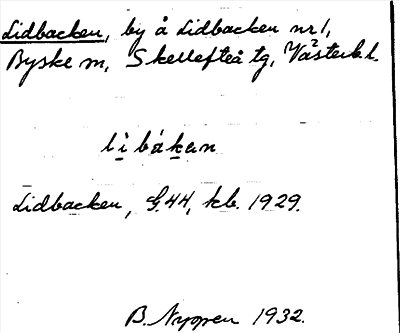 Lidbacken, by å Lidbacken nr 1,
Byske sn, Skellefteå tg, Västerb. l.
2
Lidbacken, G.44, kb. 1929.
B. Nygren 1932.